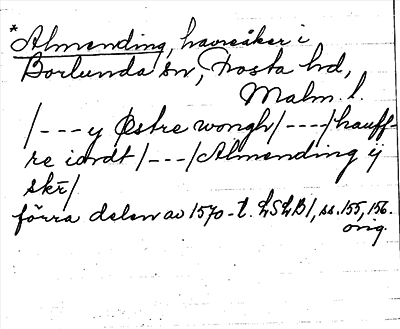 *Almending, havreåker i
Borlunda sn, Frosta hd,
Malm. l.
/---y Østre wongh/---/hauff-
re iordt/---/Almending ij
skr̄/
förra delen av 1570-t. LSLB1, ss. 155, 156.
orig.